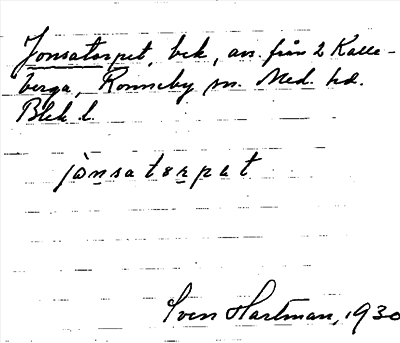 Jonsatorpet, bek, avs. från 2 Kalle-
berga, Ronneby sn. Med. hd.
Blek l.
jònsatɷrpat
Sven Hartman, 1930